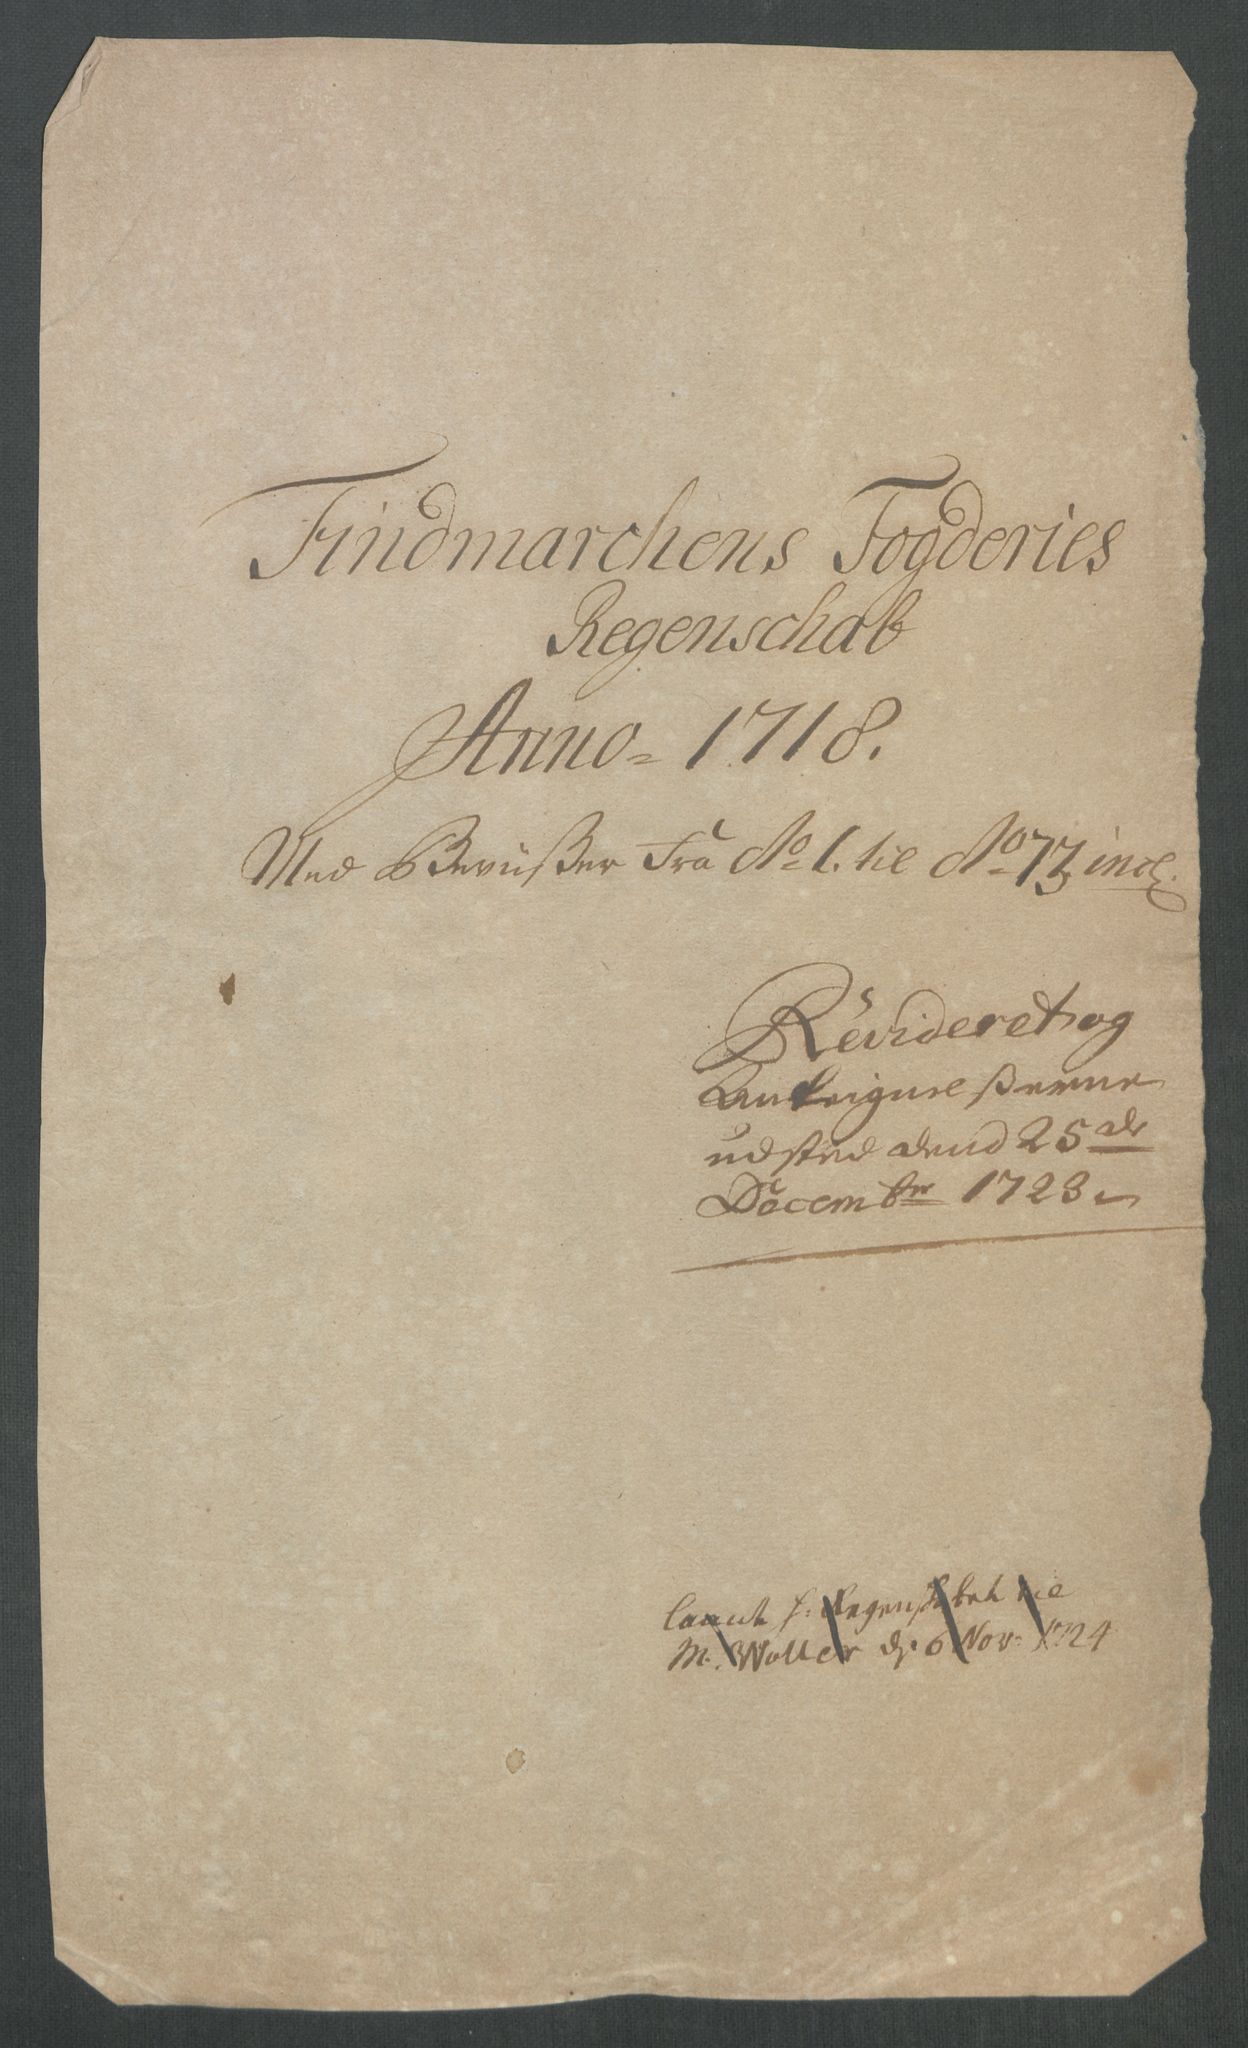 Findmarchens Fogderies
Regenschab
Anno = 1718.
Med Beviißer Fra No 1. til No 73 incl.
Revideret og
Anteignelßerne
udsted dend 25de
Decembr 1723
laant f: Regenskabet til
M. Woller d. 6 Nov: 1724